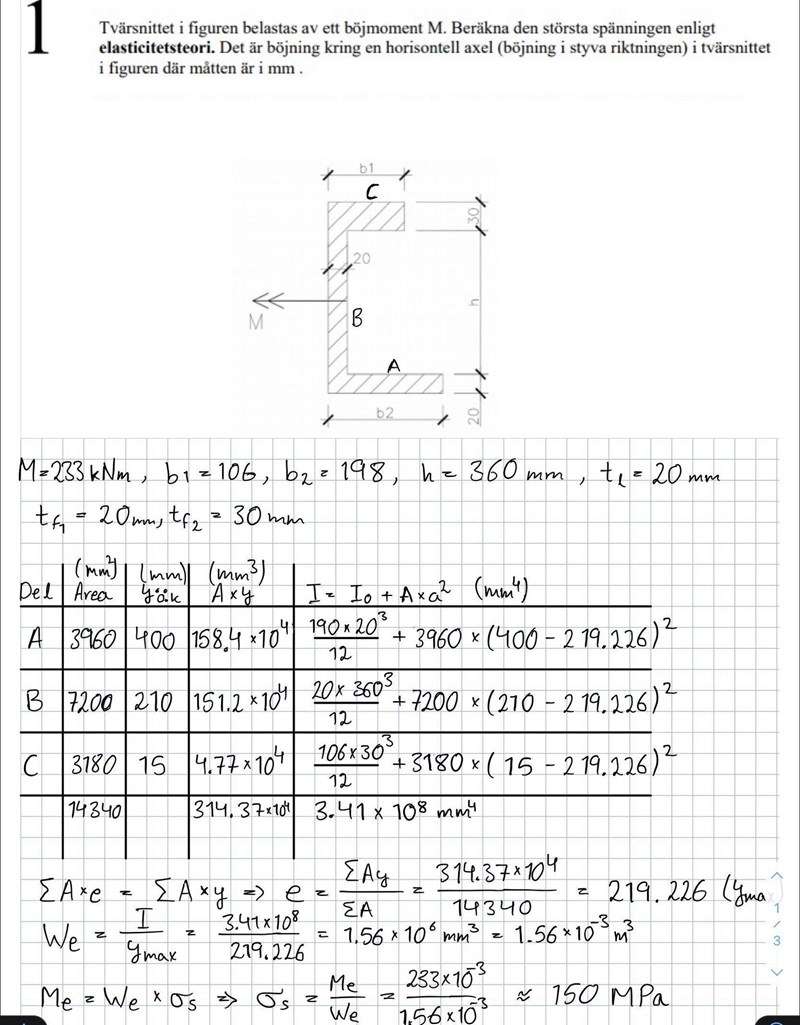 1
Tvärsnittet i figuren belastas av ett böjmoment M. Beräkna den största spänningen enligt
elasticitetsteori. Det är böjning kring en horisontell axel (böjning i styva riktningen) i tvärsnittet
i figuren där måtten är i mm .
b1
C
30
20
h
M
B
A
b2
20
M=233 kNm, b1 = 106, b2 = 198, h = 360 mm, tl = 20 mm
tf1 = 20mm, tf2 = 30 mm
(mm²) (mm) (mm³)
Del Area yök A×y I = I0 + A×a² (mm⁴)
A 3960 400 158.4 ×10⁴ 190×20³/12 + 3960 × (400 - 219.226)²
B 7200 210 151.2 ×10⁴ 20×360³/12 + 7200 × (210 - 219.226)²
C 3180 15 4.77×10⁴ 106×30³/12 + 3180 × (15 - 219.226)²
14340 314.37×10⁴ 3.41 × 10⁸ mm⁴
ΣA×e = ΣA×y => e = ΣAy/ΣA = 314.37×10⁴/14340 = 219.226 (yma
We = I/ymax = 3.41×10⁸/219.226 = 1.56 × 10⁶ mm³ = 1.56×10⁻³ m³
Me = We × σs => σs = Me/We = 233×10⁻³/1.56×10⁻³ ≈ 150 MPa
1
/
3